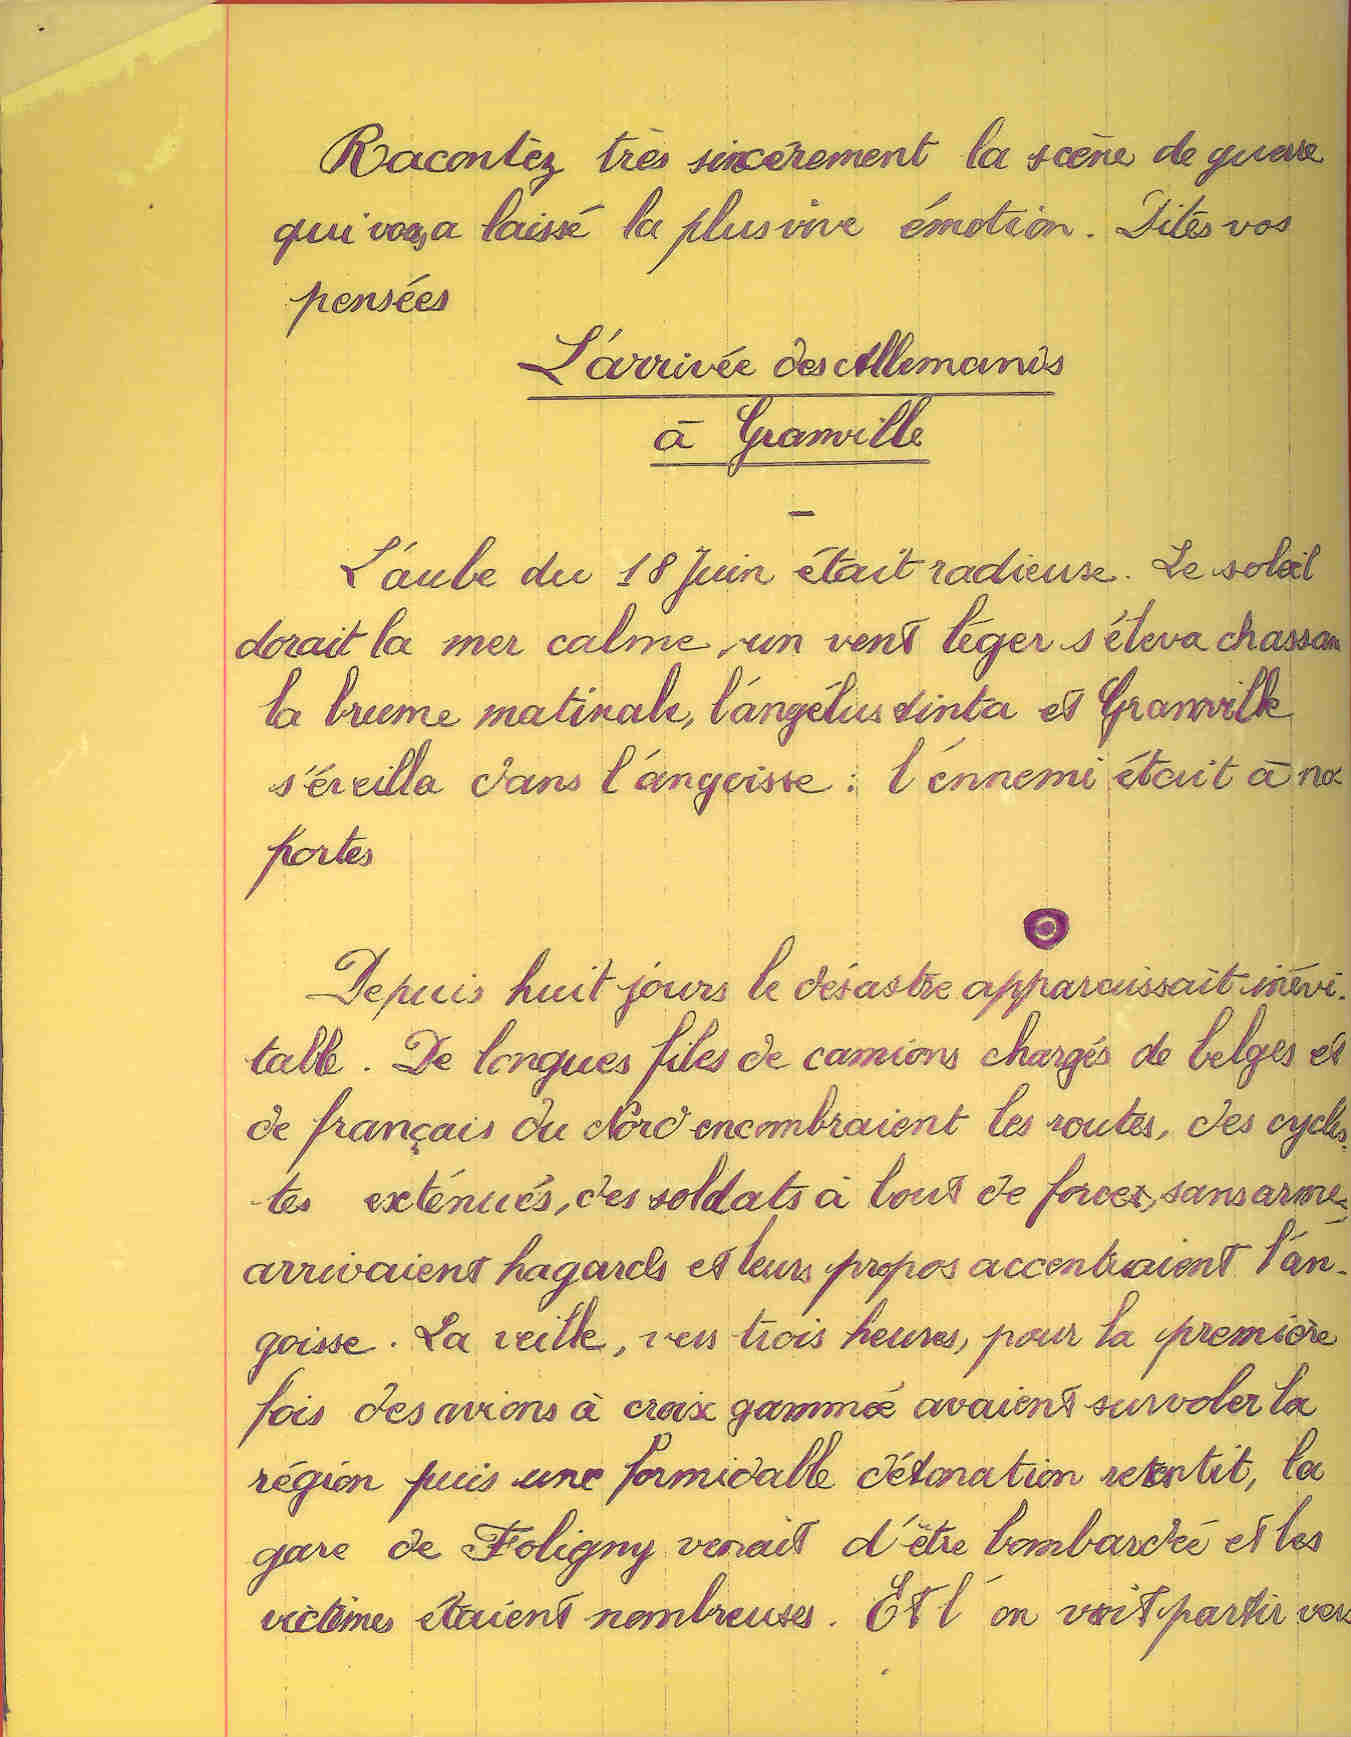 Racontez très sincèrement la scène de guerre
qui vous a laissé la plus vive émotion. Dites vos
pensées
L'arrivée des Allemands
à Granville
L'aube du 18 Juin était radieuse. Le soleil
dorait la mer calme, un vent léger s'éleva chassan
la brume matinale, l'angélus tinta et Granville
s'éveilla dans l'angoisse : l'ennemi était à nos
portes
Depuis huit jours le désastre apparaissait inévi-
table. De longues files de camions chargés de belges et
de français du Nord encombraient les routes, des cyclis-
tes exténués, des soldats à bout de forces, sans armes,
arrivaient hagards et leurs propos accentuaient l'an-
goisse. La veille, vers trois heures, pour la première
fois des avions à croix gammée avaient survoler la
région puis une formidable détonation retentit, la
gare de Folligny venait d'être bombardée et les
victimes étaient nombreuses. Et l'on voit partir vers